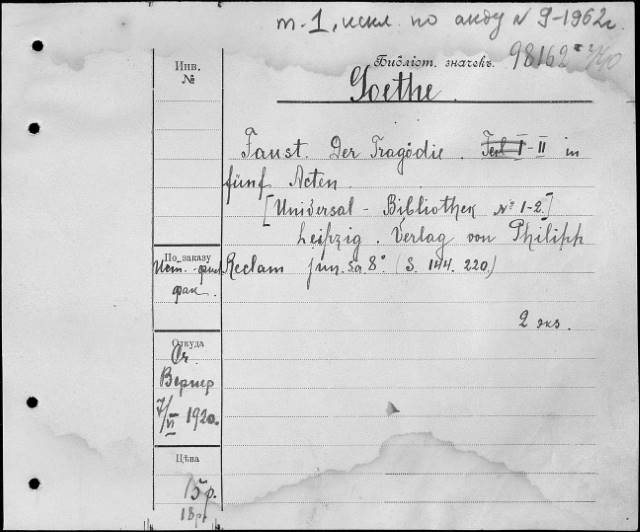 т.1, искл. по акту N 9-1962г.
Инв. №
Библіот. значекъ.
98162
Goethe.
Faust. Der Tragödie. Teil I-II in
fünf Acten.
[Universal-Bibliothek № 1-2.]
Leipzig. Verlag von Philipp
По заказу
Reclam jun. s.a. 8° (S. 144. 220.)
Ист.-фил.
фак.
2 экз.
Откуда
От
Вернер
7/VI 1920г.
Цѣна
15р.